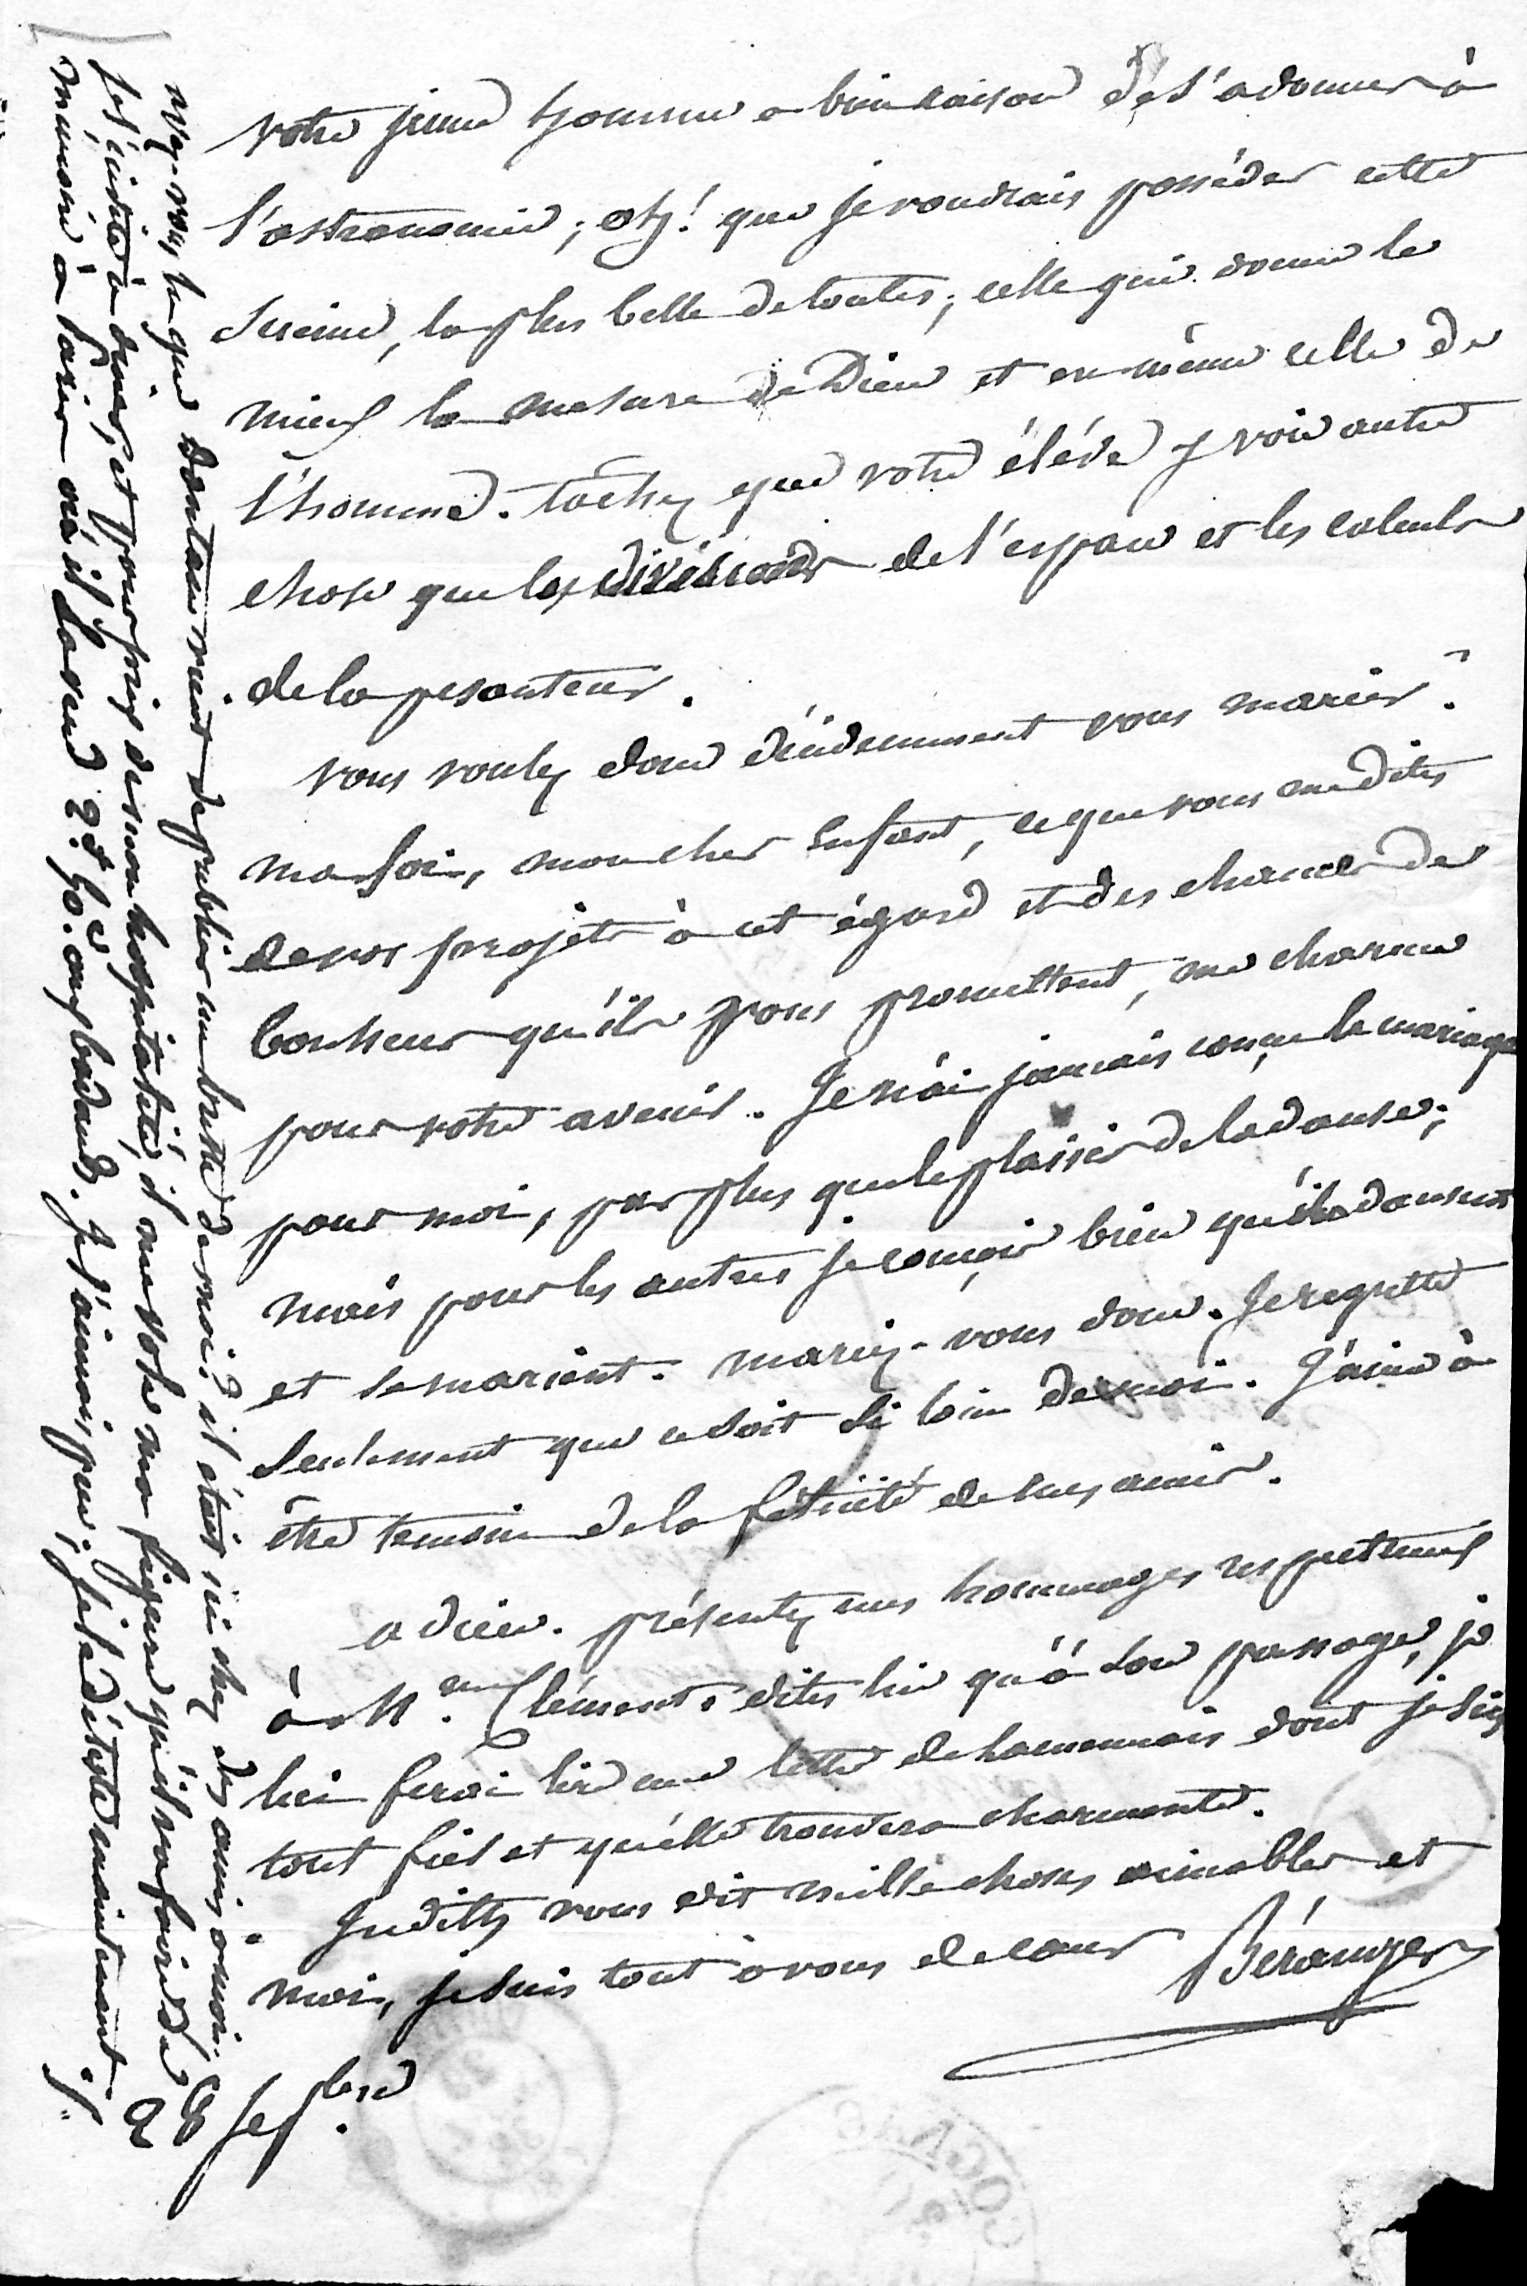 votre jeune homme a bien raison de s'adonner à
l'astronomie ; oh ! que je voudrais posséder cette
science, la plus belle de toutes ; celle qui donne le
mieux la mesure de Dieu et en même celle de
l'homme. tachez que votre élève y voie autre
chose que les divisions de l'espace et les calculs
de la pesanteur.
vous voulez donc décidemment vous marier ?
ma foi, mon cher enfant, ce que vous me dites
de vos projets à cet égard et des chances de
bonheur qu'ils vous promettent, me charme
pour votre avenir. Je n'ai jamais conçu le mariage
pour moi, pas plus que le plaisir de la danse ;
mais pour les autres je conçois bien qu'ils dansent
et se marient. mariez-vous donc. Je regrette
seulement que ce soit si loin de moi. J'aime à
être temoin de la félicité de mes amis.
adieu. présentez mes hommages respectueux
à Mme Clément. dites lui qu'à son passage, je
lui ferai lire une lettre de Lamennais dont je suis
tout fier et qu'elle trouvera charmante.
Judith vous dit mille choses aimables et
moi, je suis tout à vous de cœur Béranger
8 Sepbre
que Dantan vient de publier un buste de moi ? il était ici chez des amis à moi.
Je l'invite à diner, et pour prix de mon hospitalité, il me vole ma figure qu'il va faire de
mémoire à Paris où il la vend 2f 50c aux badauds. Je l'aimais peu ; je le déteste maintenant.
COGNAC